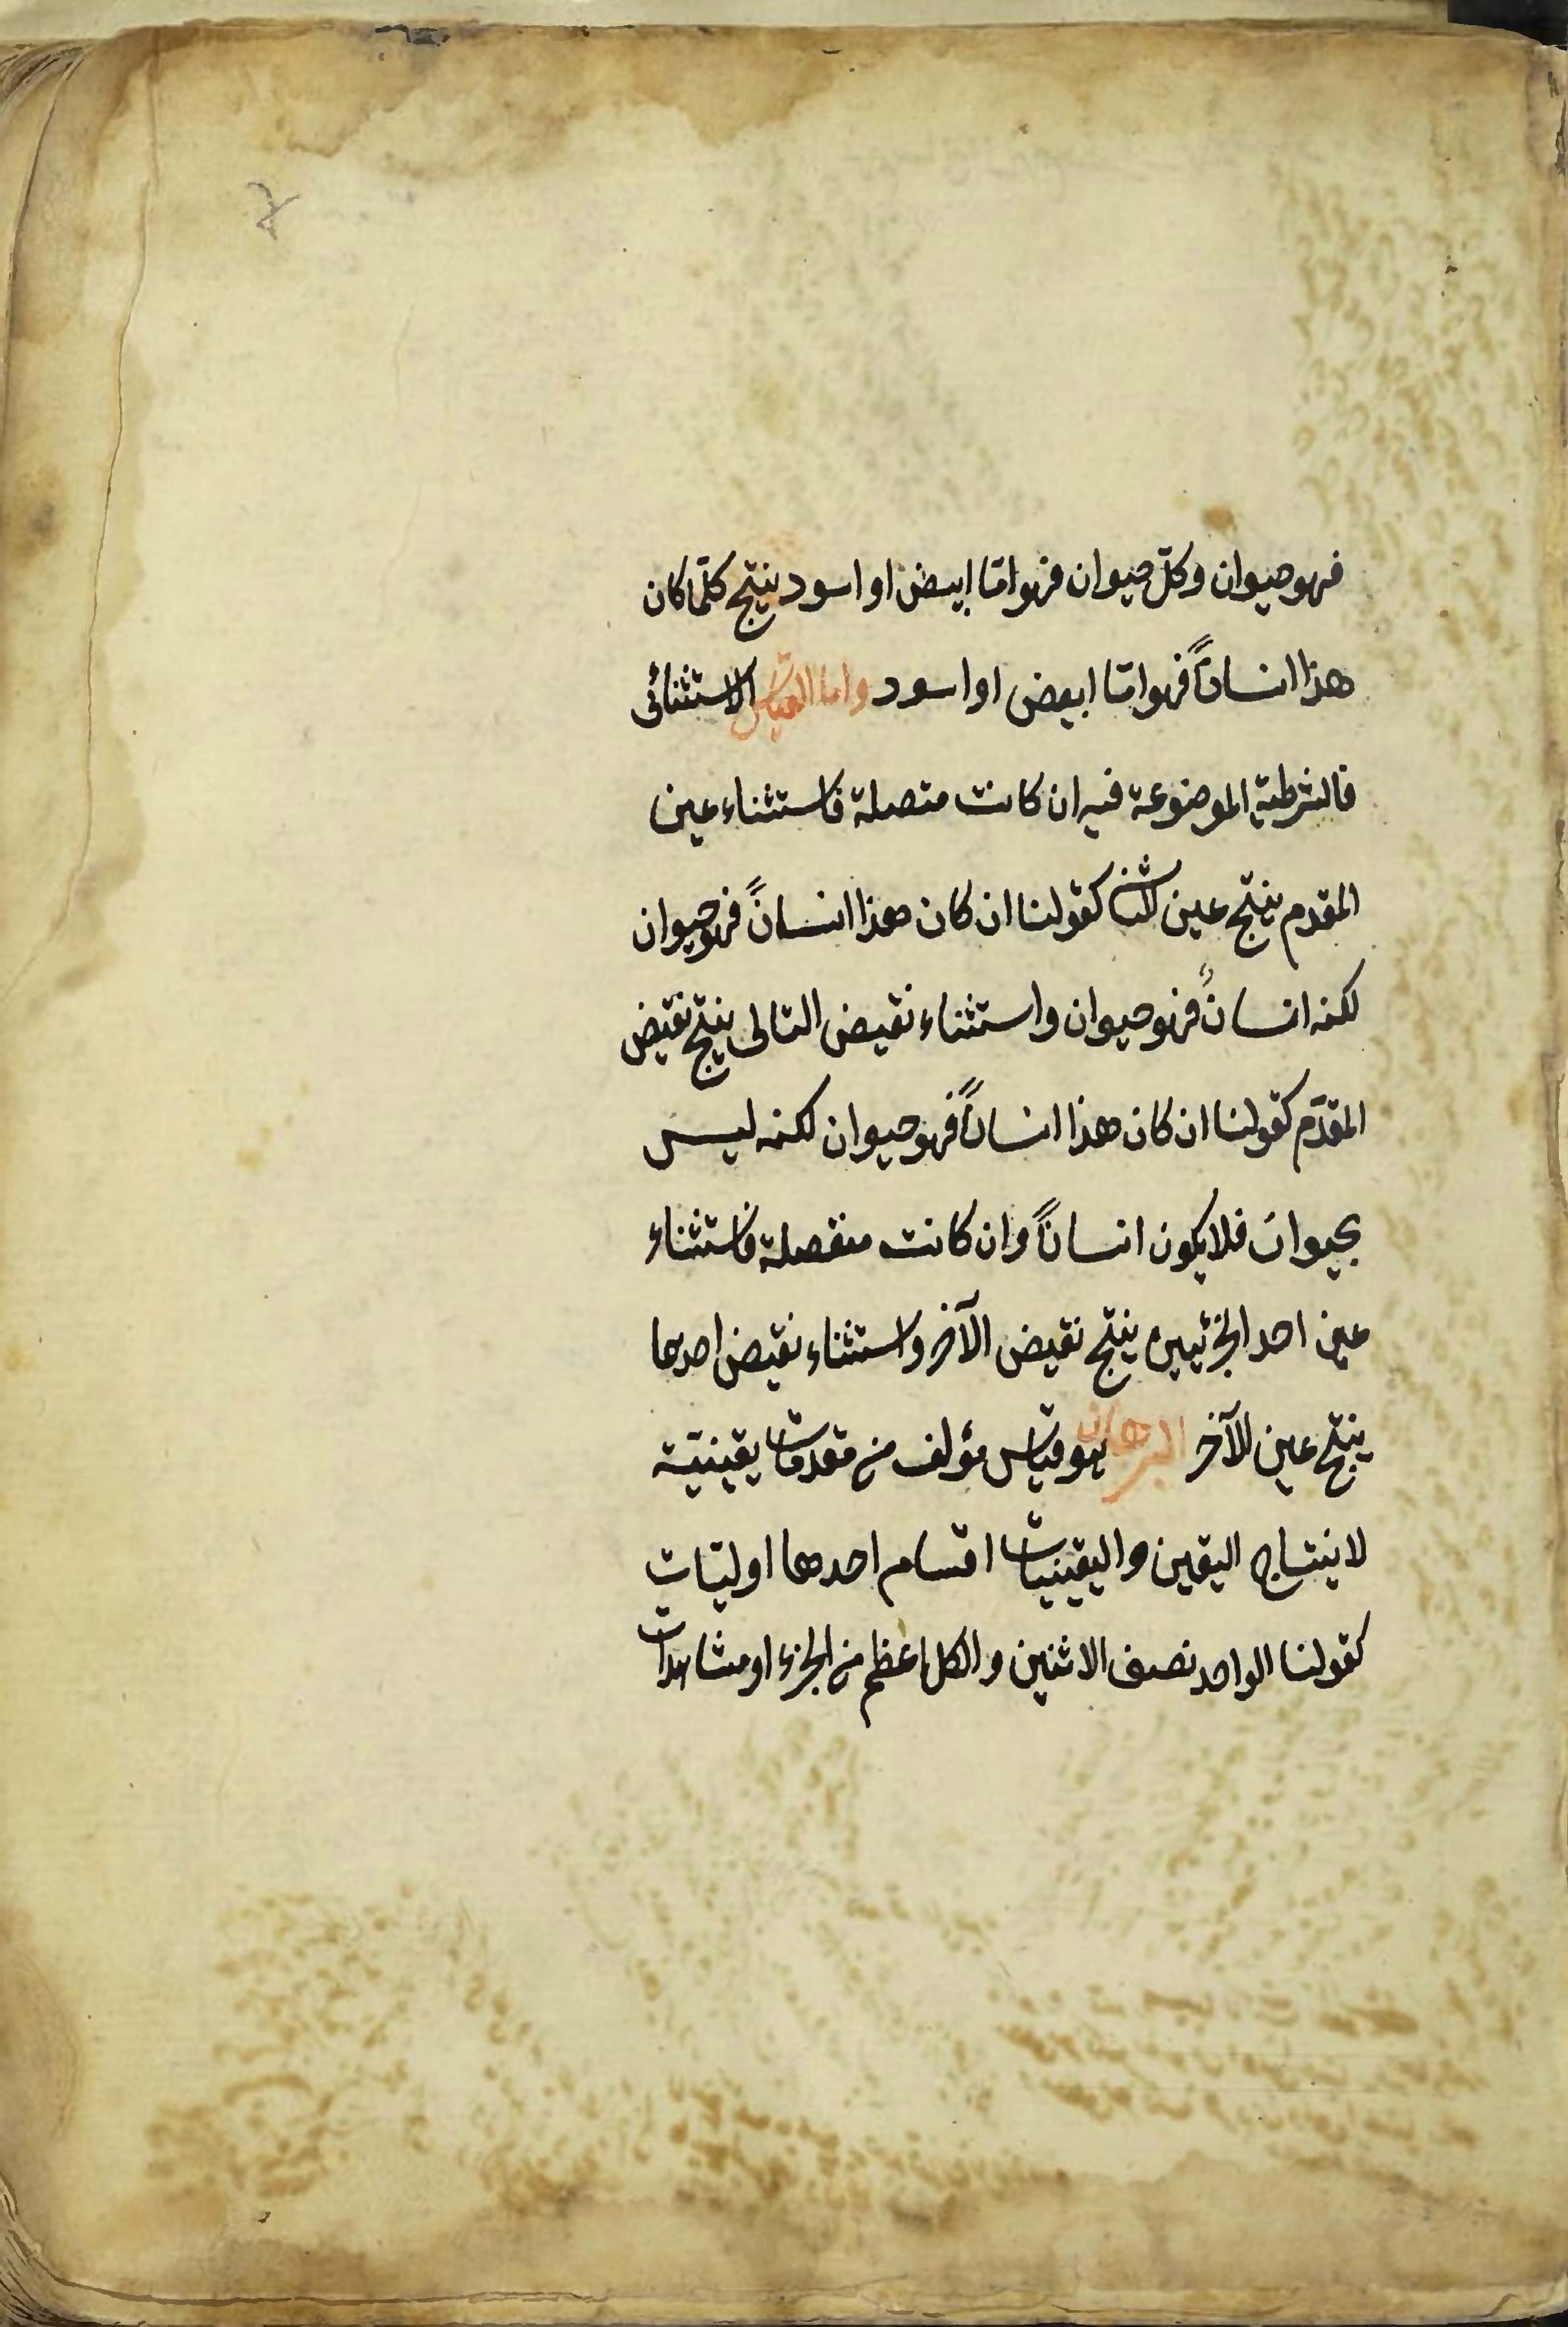 فهو حيوان وكلّ حيوان فهو امّا ابيض او اسود ينتج كلّما كان
هذا انساناً فهو امّا ابيض او اسود واما القياس الاستثنائى
فالشرطية الموضوعة فيه ان كانت متصلة فاستثناء عين
المقدم ينتج عين كقولنا ان كان هذا انساناً فهو حيوان
لكنه انسانٌ فهو حيوان واستثناء نقيض التالى ينتج نقيض
المقدّم كقولنا ان كان هذا انساناً فهو حيوان لكنه ليس
بحيوان فلا يكون انساناً وان كانت منفصلة فاستثناء
عين احد الجزئيين ينتج نقيض الآخر واستثناء نقيض احدهما
ينتج عين الآخر البرهان هو قياس مؤلف من مقدمات يقينيّة
لاينتاج اليقين واليقينيات اقسام احدهما اوليّات
كقولنا الواحد نصف الاثنين والكل اعظم من الجزء او مشاهدات